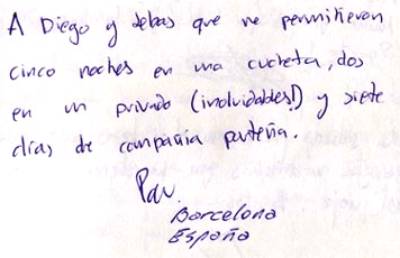 A Diego y Sebas que me permitieron
cinco noches en una cucheta, dos
en un privado (inolvidables!) y siete
días de compañía porteña.
Pau.
Barcelona
España